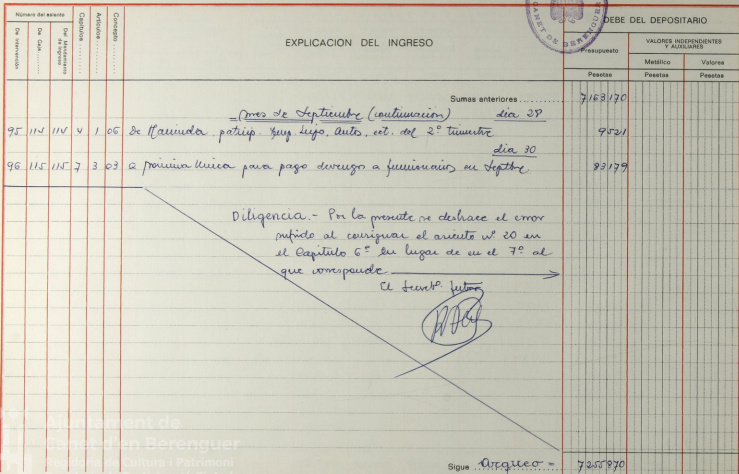 CANET DE BERENGUER
Número del asiento
De Intervención
De Caja
Del Mandamiento de Ingreso
Capítulos
Artículos
Concepto
EXPLICACION DEL INGRESO
DEBE DEL DEPOSITARIO
Presupuesto
VALORES INDEPENDIENTES Y AUXILIARES
Metálico
Valores
Pesetas
Pesetas
Pesetas
Sumas anteriores 7163170
= mes de Septiembre (continuación) dia 28
95 114 114 4 1 06 De Hacienda, particip. Lujo, Autos, ect. del 2º trimestre 9521
dia 30
96 115 115 7 3 03 a nómina Unica para pago devengos a funcionarios en Septbre 83179
Diligencia.- Por la presente se deshace el error
sufrido al consignar el asiento nº 20 en
el Capitulo 6º en lugar de en el 7º al
que corresponde
El Secret.
Ajuntament de
Canet d'en Berenguer
Regidoria de Cultura i Patrimoni
Sigue Arqueo = 7255870